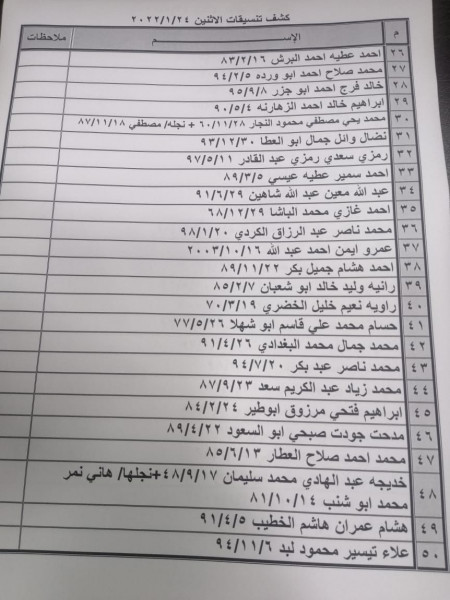 كشف تنسيقات الاثنين ٢٠٢٢/١/٢٤
م الإســـــــم ملاحظات
٢٦ احمد عطيه احمد البرش ٨٣/٢/١٦
٢٧ محمد صلاح احمد ابو ورده ٩٤/٢/٥
٢٨ خالد فرج احمد ابو جزر ٩٥/٩/٨
٢٩ ابراهيم خالد احمد الزهارنه ٩٠/٥/٤
٣٠ محمد يحي مصطفي محمود النجار ٦٠/١١/٢٨ + نجله/ مصطفي ٨٧/١١/١٨
٣١ نضال وائل جمال ابو العطا ٩٣/١٢/٣٠
٣٢ رمزي سعدي رمزي عبد القادر ٩٧/٥/١١
٣٣ احمد سمير عطيه عيسي ٨٩/٣/٥
٣٤ عبد الله معين عبد الله شاهين ٩١/٦/٢٩
٣٥ احمد غازي محمد الباشا ٦٨/١٢/٢٩
٣٦ محمد ناصر عبد الرزاق الكردي ٩٨/١/٢٠
٣٧ عمرو ايمن احمد عبد الله ٢٠٠٣/١٠/١٦
٣٨ احمد هشام جميل بكر ٨٩/١١/٢٢
٣٩ رانيه وليد خالد ابو شعبان ٨٥/٢/٧
٤٠ راويه نعيم خليل الخضري ٧٠/٣/١٩
٤١ حسام محمد علي قاسم ابو شهلا ٧٧/٥/٢٦
٤٢ محمد جمال محمد البغدادي ٩١/٤/٢٦
٤٣ محمد ناصر عبد بكر ٩٤/٧/٢٠
٤٤ محمد زياد عبد الكريم سعد ٨٧/٩/٢٣
٤٥ ابراهيم فتحي مرزوق ابوطير ٨٤/٢/٢٤
٤٦ مدحت جودت صبحي ابو السعود ٨٩/٤/٢٢
٤٧ محمد احمد صلاح العطار ٨٥/٦/١٣
٤٨ خديجه عبد الهادي محمد سليمان ٤٨/٩/١٧+نجلها/ هاني نمر
محمد ابو شنب ٨١/١٠/١٤
٤٩ هشام عمران هاشم الخطيب ٩١/٤/٥
٥٠ علاء تيسير محمود لبد ٩٤/١١/٦